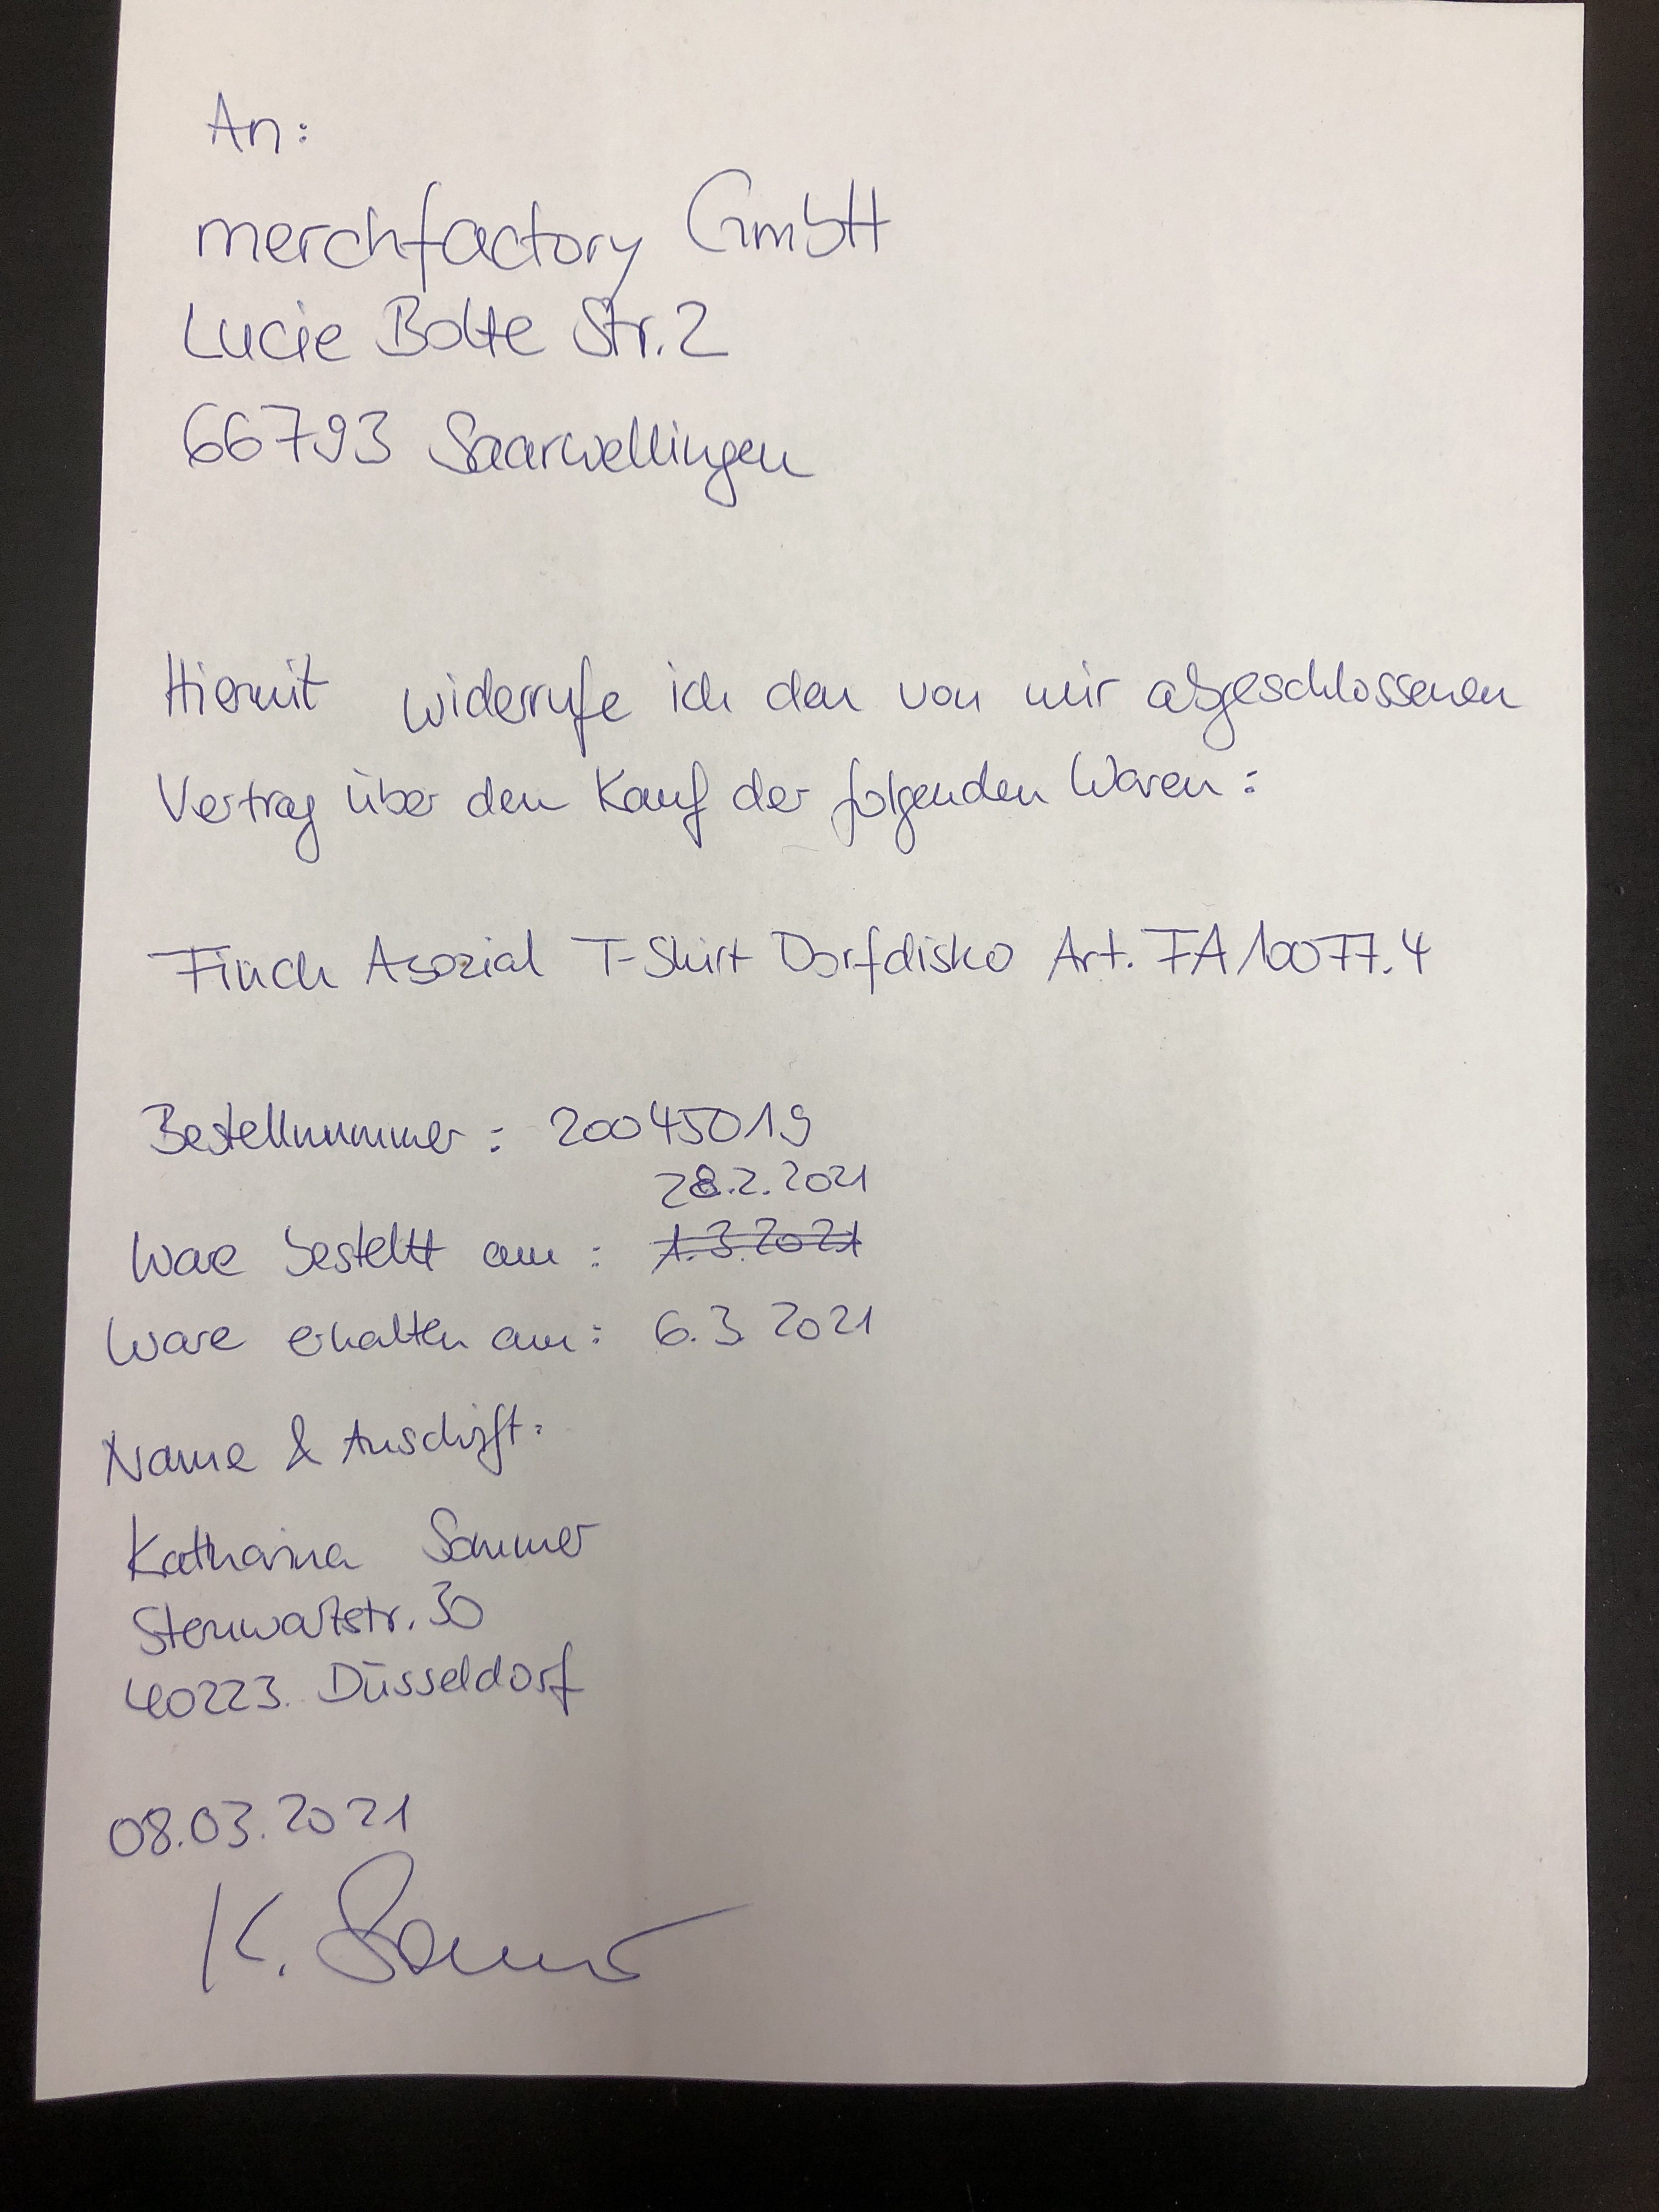 An:
merchfactory GmbH
Lucie Bolte Str. 2
66793 Saarwellingen
Hiermit widerrufe ich den von mir abgeschlossenen
Vertrag über den Kauf der folgenden Waren:
Finch Asozial T-Shirt Dorfdisko Art. FA10077.4
Bestellnummer: 20045019
28.2.2021
Ware bestellt am: 1.3.2021
Ware erhalten am: 6.3.2021
Name & Anschrift:
Katharina Sommer
Sternwartstr. 30
40223 Düsseldorf
08.03.2021
K. Sommer